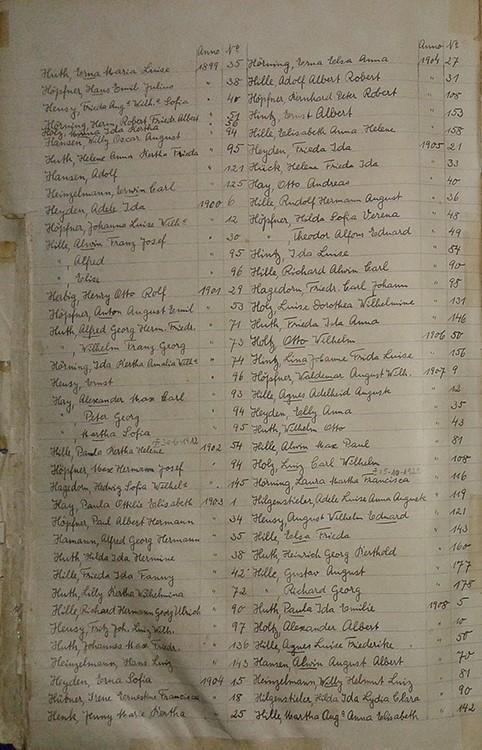 Anno No
Huth, Erna Maria Luise 1899 35
Höpfner, Hans Emil Julius " 38
Heusy, Frieda Aug. Wilh. Sofia " 40
Hörning, Herm. Robert Friedr. Albert " 51
Holz, Ida Bertha 56
Hansen, Willy Oscar August " 94
Huth, Helene Anna Bertha Frieda " 95
Hansen, Adolf " 121
Heinzelmann, Erwin Carl " 125
Heyden, Adele Ida 1900 6
Höpfner, Johanna Luise Wilh. " 12
Hille, Alwin Franz Josef " 30
" , Alfred " 95
" , Elise " 96
Herbig, Henry Otto Rolf 1901 29
Höpfner, Anton August Emil " 53
Huth, Alfred Georg Herm. Friedr. " 71
" , Wilhelm Franz Georg " 73
Hörning, Ida Bertha Amalia Wilh. " 74
Heusy, Ernst " 96
Hay, Alexander Max Carl " 93
" , Peter Georg " 94
" , Martha Sofia " 95
Hille, Paula Bertha Helene 1902 54
Höpfner, Max Hermann Josef " 94
Hagedorn, Hedwig Sofia Wilh. " 145
Hay, Paula Ottilie Elisabeth 1903 1
Höpfner, Paul Albert Hermann " 34
Hamann, Alfred Georg Hermann " 35
Huth, Hilda Ida Hermine " 38
Hille, Frieda Ida Fanny " 42
Huth, Lilly Bertha Wilhelmina " 72
Hille, Richard Hermann Georg Ulrich " 90
Heusy, Fritz Joh. Luiz Wilh. " 97
Huth, Johannes Max Friedr. " 136
Heinzelmann, Hans Luiz " 143
Heyden, Erna Sofia 1904 15
Hübner, Irene Ernestine Francisca " 18
Henk, Jenny Marie Bertha " 25
Anno No
Hörning, Erna Elsa Anna 1904 27
Hille, Adolf Albert Robert " 31
Höpfner, Bernhard Peter Robert " 108
Hintz, Ernst Albert " 153
Hille, Elisabeth Anna Helene " 158
Heyden, Frieda Ida 1905 21
Huck, Helene Frieda Ida " 33
Hay, Otto Andreas " 40
Hille, Rudolf Hermann August " 36
Höpfner, Hilda Sofia Verena " 48
" , Theodor Alfons Eduard " 49
Hintz, Ida Luise " 84
Hille, Richard Alwin Carl " 90
Hagedorn, Friedr. Carl Johann " 95
Holz, Luise Dorothea Wilhelmine " 131
Huth, Frieda Ida Anna " 146
Holz, Otto Wilhelm 1906 50
Hintz, Lina Johanne Frida Luise " 156
Höpfner, Waldemar August Wilh. 1907 9
Hille, Agnes Adelheid Auguste " 12
Heyden, Elly Anna " 35
Huth, Wilhelm Otto " 43
Hille, Alwin Max Paul " 81
Holz, Luiz Carl Wilhelm " 108
Hörning, Laura Martha Francisca " 116
Hilgenstieler, Adele Luise Anna Auguste " 119
Heusy, August Wilhelm Eduard " 121
Hille, Elsa Frieda " 143
Huth, Heinrich Georg Berthold " 160
Hille, Gustav August " 177
" , Richard Georg " 178
Huth, Paula Ida Emilie 1908 5
Holz, Alexander Albert " 10
Hille, Agnes Luise Friederike " 50
Hansen, Alwin August Albert " 70
Heinzelmann, Willy Helmut Luiz " 81
Hilgenstieler, Hilda Ida Lydia Clara " 90
Hille, Martha Aug. Anna Elisabeth " 142